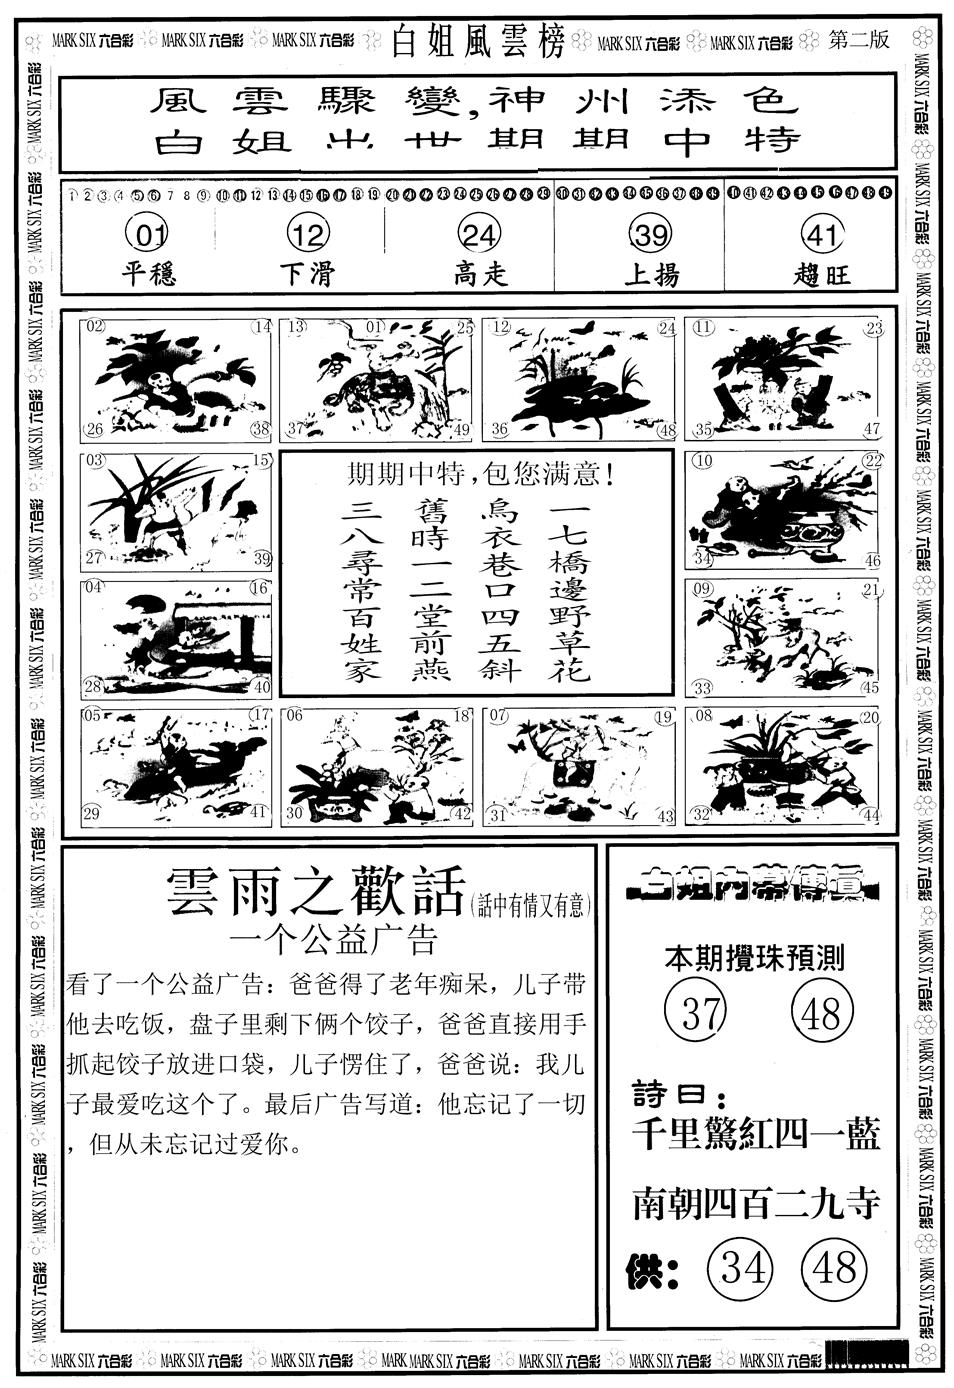 MARK SIX 六合彩 MARK SIX 六合彩 MARK SIX 六合彩 白姐風雲榜 MARK SIX 六合彩 MARK SIX 六合彩 第二版
風雲驟變,神州添色
白姐出世期期中特
1 2 3 4 5 6 7 8 9 10 11 12 13 14 15 16 17 18 19 20 21 22 23 24 25 26 27 28 29 30 31 32 33 34 35 36 37 38 39 40 41 42 43 44 45 46 47 48 49
01 12 24 39 41
平穩 下滑 高走 上揚 趨旺
02 14 13 01 25 12 24 11 23
26 38 37 49 36 48 35 47
03 15
27 39
04 16
28 40
期期中特,包您满意!
一七橋邊野草花
烏衣巷口四五斜
舊時一二堂前燕
三八尋常百姓家
10 22
34 46
09 21
33 45
05 17 06 18 07 19 08 20
29 41 30 42 31 43 32 44
雲雨之歡話(話中有情又有意)
一个公益广告
看了一个公益广告：爸爸得了老年痴呆，儿子带
他去吃饭，盘子里剩下俩个饺子，爸爸直接用手
抓起饺子放进口袋，儿子愣住了，爸爸说：我儿
子最爱吃这个了。最后广告写道：他忘记了一切
，但从未忘记过爱你。
白姐内幕傳真
本期攪珠預測
37 48
詩曰：
千里驚紅四一藍
南朝四百二九寺
供： 34 48
MARK SIX 六合彩 MARK SIX 六合彩 MARK SIX 六合彩 MARK MARK SIX 六合彩 MARK SIX 六合彩 MARK SIX 六合彩 MARK SIX 六合彩